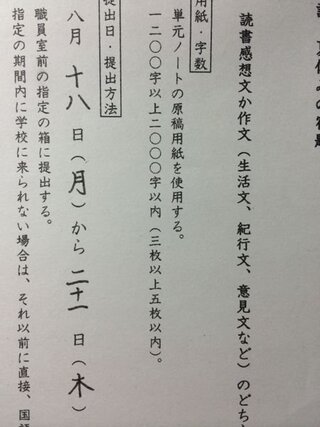 読書感想文か作文（生活文、紀行文、意見文など）のどち
用紙・字数
単元ノートの原稿用紙を使用する。
一二〇〇字以上二〇〇〇字以内（三枚以上五枚以内）。
提出日・提出方法
八月十八日（月）から二十一日（木）
職員室前の指定の箱に提出する。
指定の期間内に学校に来られない場合は、それ以前に直接、国語